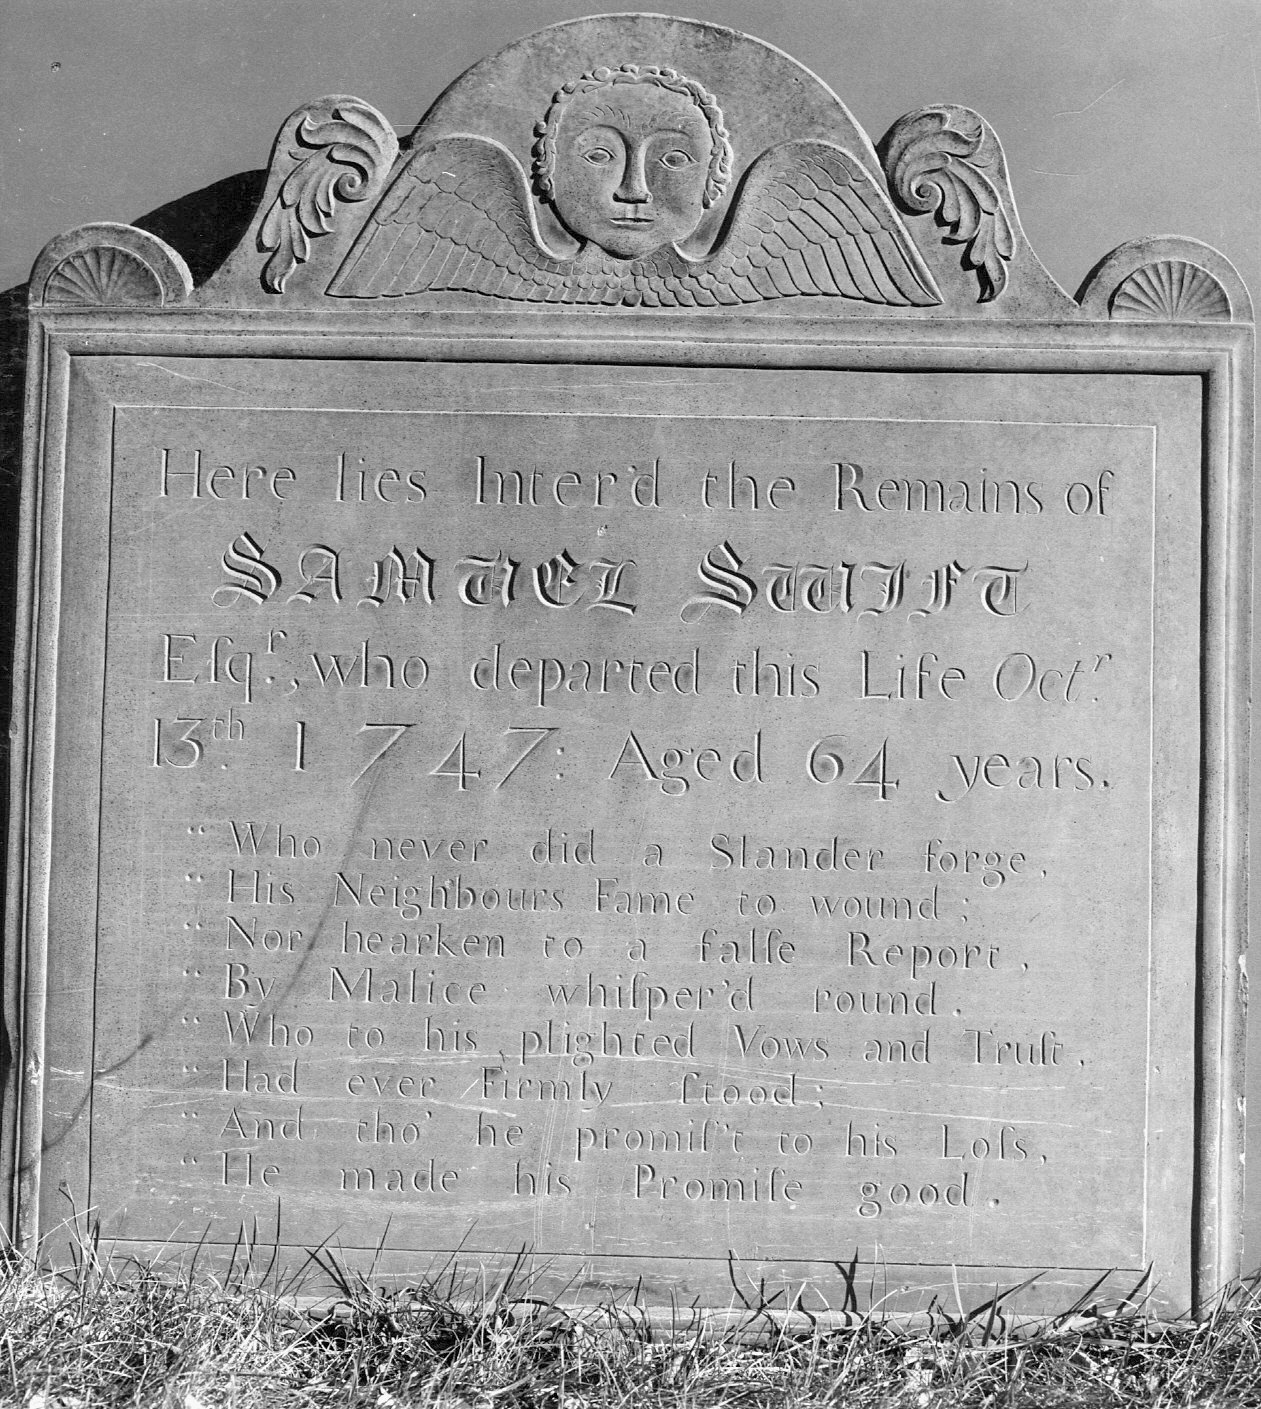 Here lies Inter'd the Remains of
SAMUEL SWIFT
Eſqʳ., who departed this Life Octʳ.
13ᵗʰ. 1747: Aged 64 years.
“ Who never did a Slander forge,
“ His Neighbours Fame to wound;
“ Nor hearken to a falſe Report,
“ By Malice whiſper'd round.
“ Who to his plighted Vows and Truſt,
“ Had ever Firmly ſtood;
“ And tho' he promiſ't to his Loſs,
“ He made his Promiſe good.